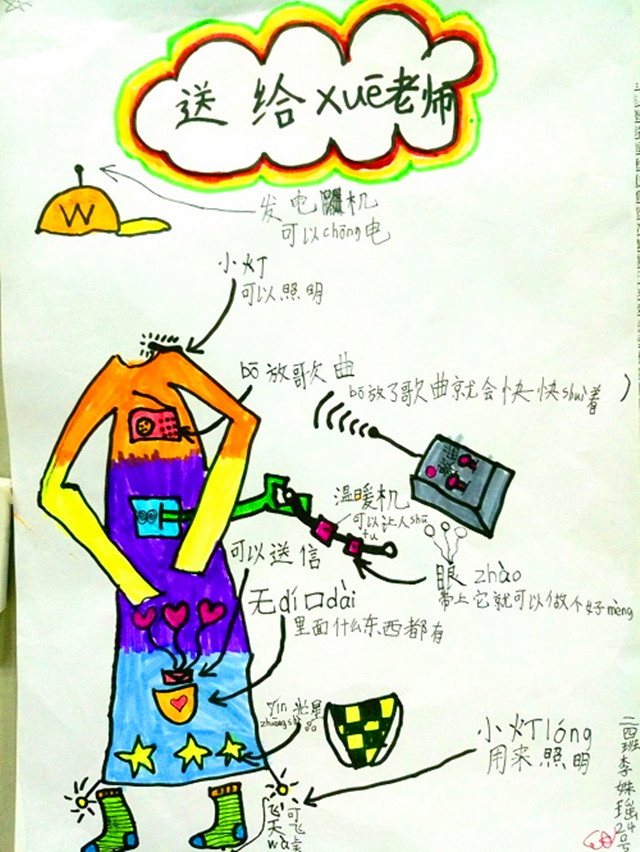 送给xuē老师
W
发电机
可以chōng电
小灯
可以照明
bō放歌欠曲
bō放了歌曲就会快快shuì着
温暖机
可以让人shū
fu
可以送信
眼zhào
带上它就可以做个好mèng
无dí口dài
里面什么东西都有
小灯lóng
用来照明
二四班李姝瑶24号